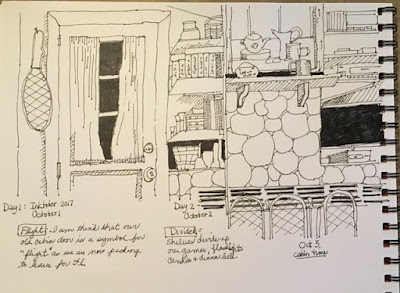 Day 1: Inktober 2017
October 1
Flight: I am think that our
old cabin door is a symbol for
"flight" as we are now packing
to leave for
Day 2
October 2
Divided:
Shelves divide up
our games, flashlights
candles & dinner bell.
Oct 3
Cabin